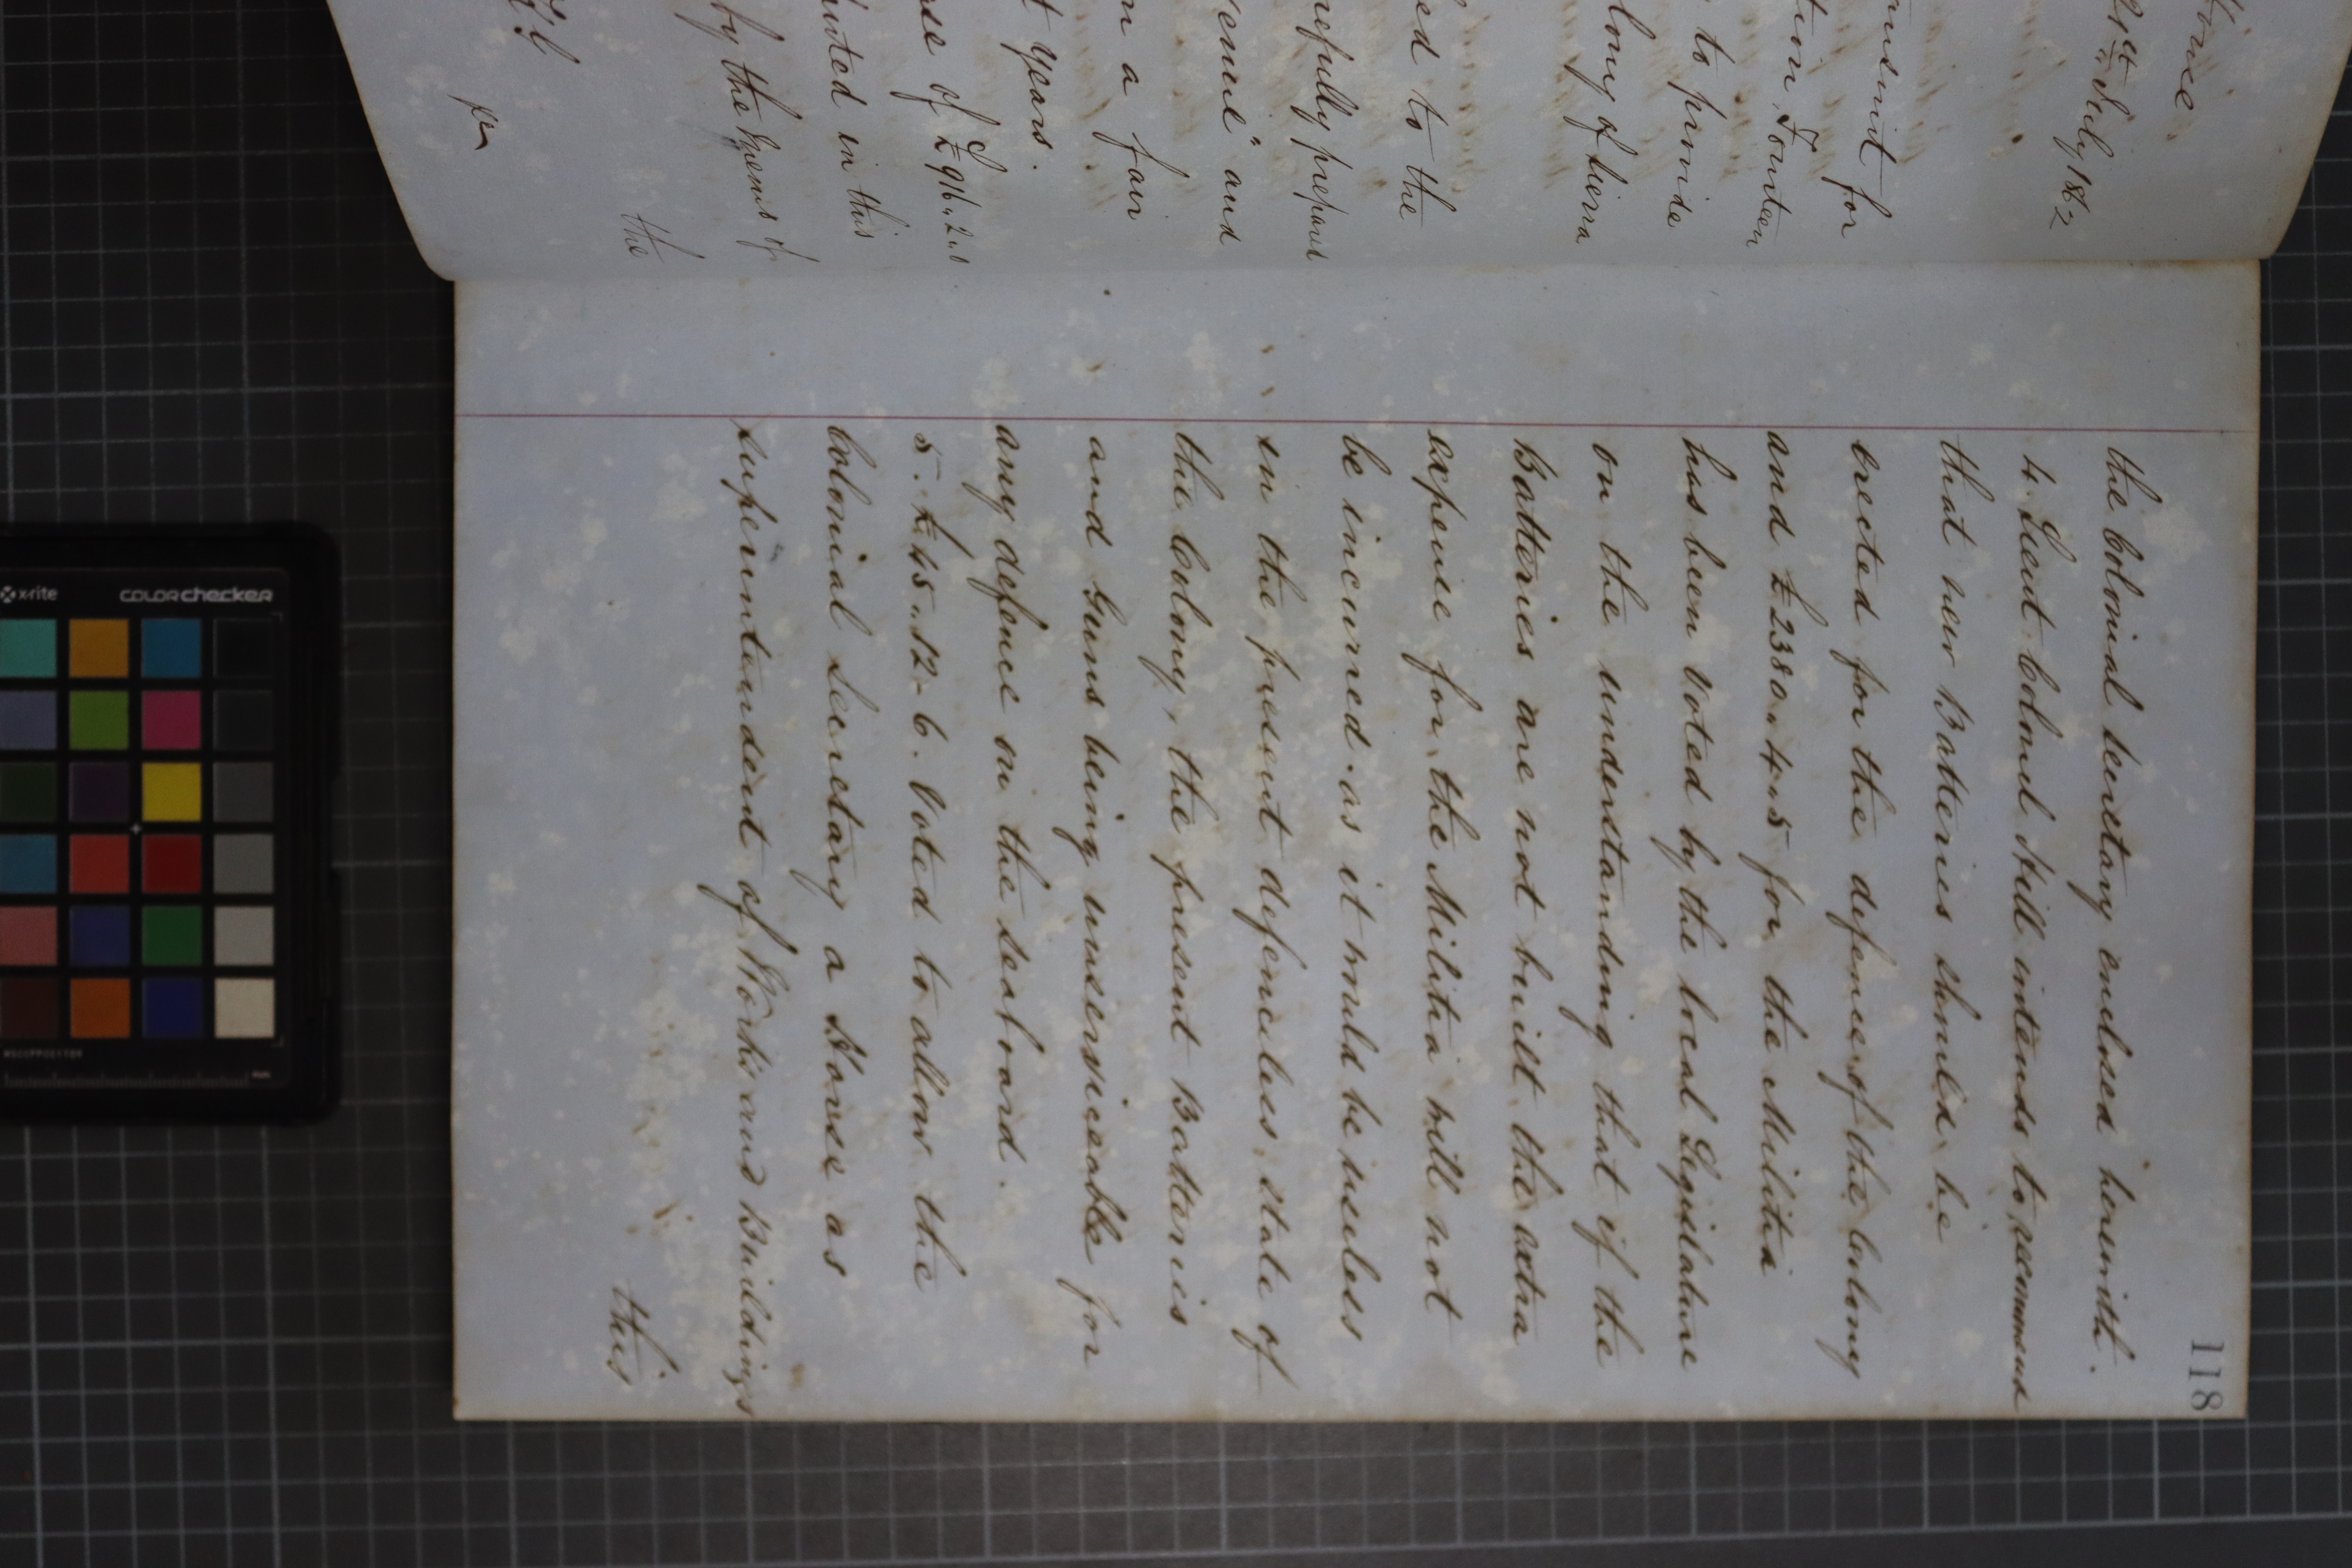 118
the Colonial Secretary enclosed herewith.
4. Lieut Colonel Hill intends to recommend
that new Batteries should be
erected for the defence of the Colony
and £2380.4.5 for the Militia
has been voted by the local Legislature
on the understanding that if the
Batteries are not built the extra
expense for the Militia will not
be incurred as it would be useless
in the present defenceless state of
the Colony, the present Batteries
and Guns being unserviceable for
any defence on the seaboard.
5. £45.12.6. Voted to allow the
Colonial Secretary a Horse as
Superintendent of Works and Buildings
this
July 186
for
Fourteen
to provide
of Sierra
to the
prepared
and
a fair
years.
of £96.2.
in this
by the of
the
x-rite
colorchecker